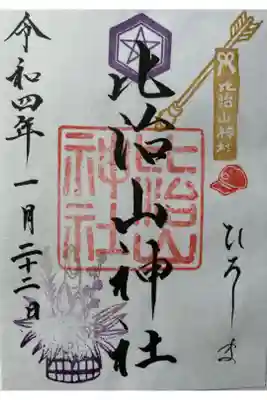 比治山神社
ひろしま
令和四年一月二十二日
比治山神社
比治山神社